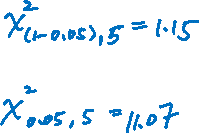 χ²₍₁₋₀.₀₅₎,₅ = 1.15
χ²₀.₀₅,₅ = 11.07